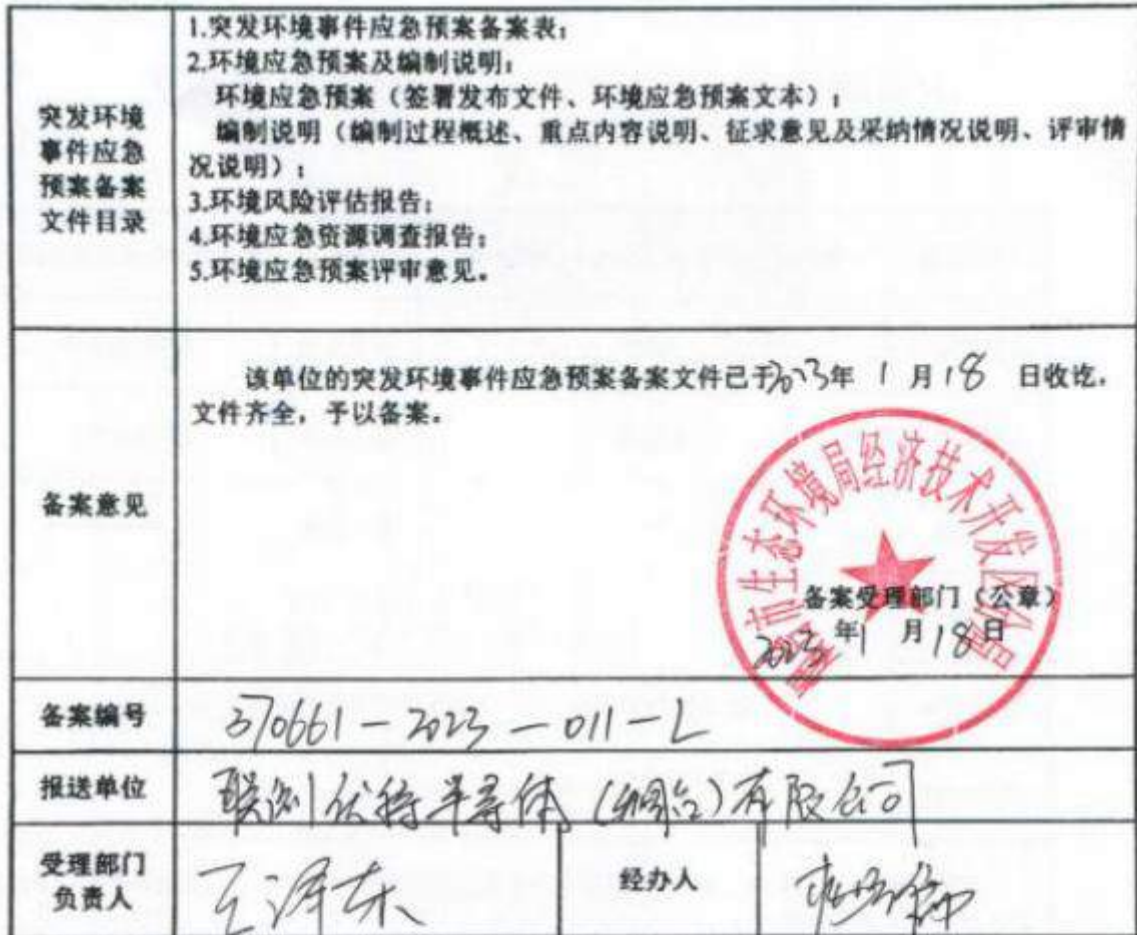 突发环境
事件应急
预案备案
文件目录
1.突发环境事件应急预案备案表；
2.环境应急预案及编制说明；
环境应急预案（签署发布文件、环境应急预案文本）；
编制说明（编制过程概述、重点内容说明、征求意见及采纳情况说明、评审情
况说明）；
3.环境风险评估报告；
4.环境应急资源调查报告；
5.环境应急预案评审意见。
备案意见
该单位的突发环境事件应急预案备案文件已于2023年 1 月 18 日收讫，
文件齐全，予以备案。
市生态环境局经济技术开发区分局
备案受理部门（公章）
2023 年 1 月 18 日
备案编号
370661-2023-011-L
报送单位
联创伏特半导体（烟台）有限公司
受理部门
负责人
王泽东
经办人